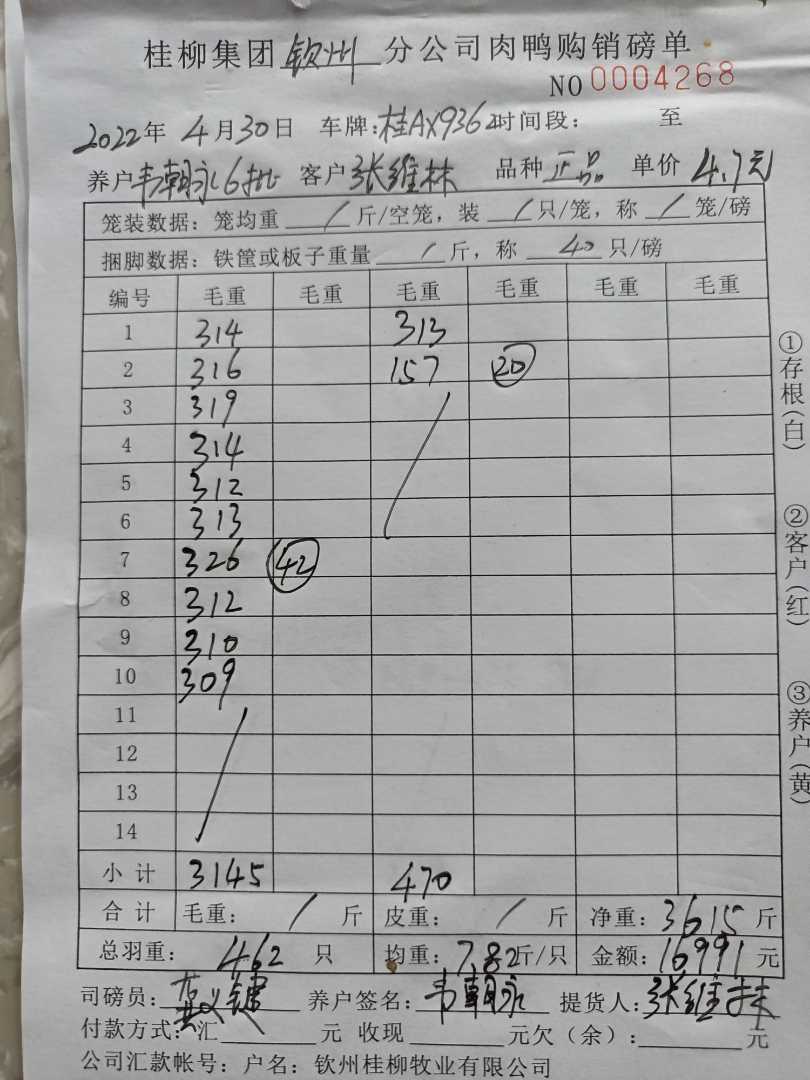 桂柳集团钦州分公司肉鸭购销磅单
NO 0004268
2022年4月30日 车牌:桂AX9362时间段: 至
养户韦朝永6批 客户张维林 品种正品 单价4.7元
笼装数据:笼均重/斤/空笼,装/只/笼,称/笼/磅
捆脚数据:铁筐或板子重量/斤,称40只/磅
编号 毛重 毛重 毛重 毛重 毛重 毛重
1 314 313
2 316 157 20
3 319
4 314
5 312
6 313
7 326 42
8 312
9 310
10 309
11
12
13
14
小计 3145 470
合计 毛重:/斤 皮重:/斤 净重:3615斤
总羽重:462只 均重:7.82斤/只 金额:16991元
司磅员: 养户签名:韦朝永 提货人:张维林
付款方式:汇 元 收现 元欠(余): 元
公司汇款帐号:户名:钦州桂柳牧业有限公司
①存根(白)
②客户(红)
③养户(黄)